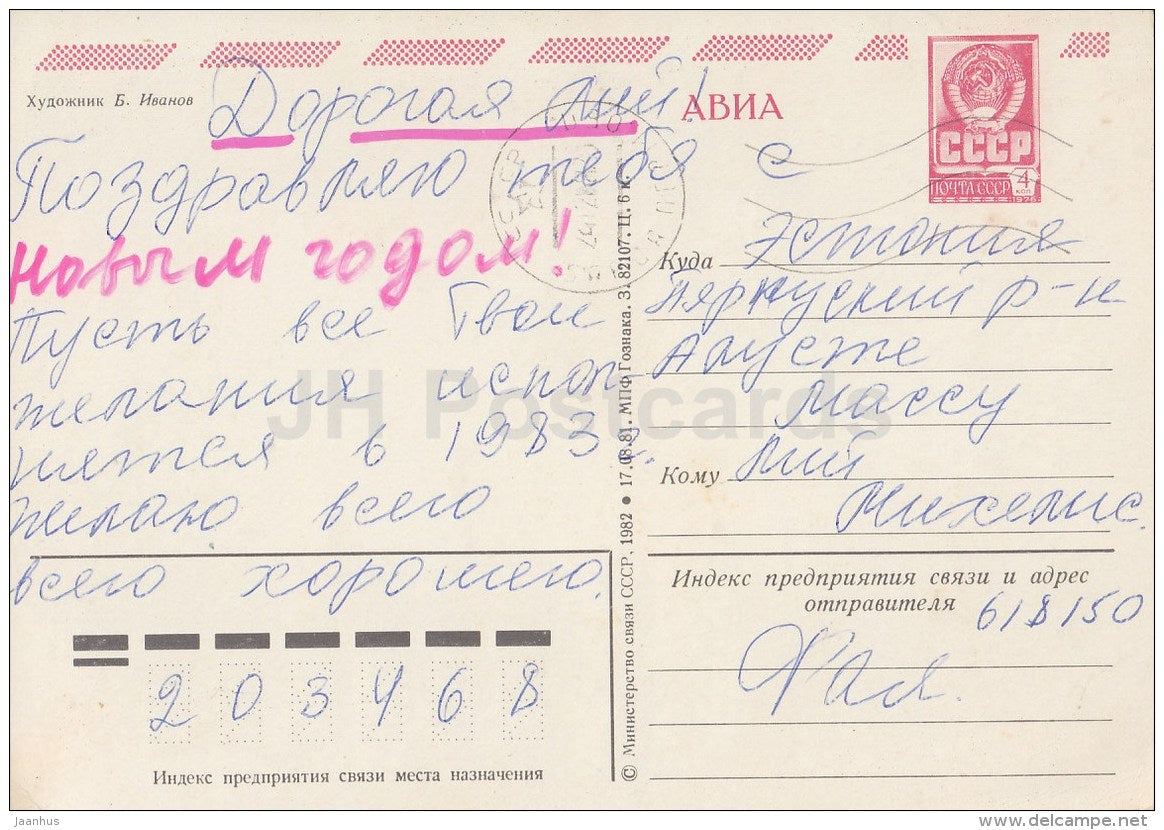 Художник Б. Иванов
Дорогая Лий!
Поздравляю тебя с
новым годом!
Пусть все Твои
желания испол-
нятся в 1983 г.
Желаю всего
всего хорошего.
203468
Индекс предприятия связи места назначения
© Министерство связи СССР, 1982 • 17.08.81. МПФ Гознака. З. 82107. Ц. 6 к.
АВИА
СССР
ПОЧТА СССР
4
КОП
1976
Куда Эстония
Пярнуский р-н
Аруссте
Массу
Кому Лий
Михельс.
Индекс предприятия связи и адрес
отправителя 618150
Рая.
JH Postcards
Jaanhus
www.delcampe.net